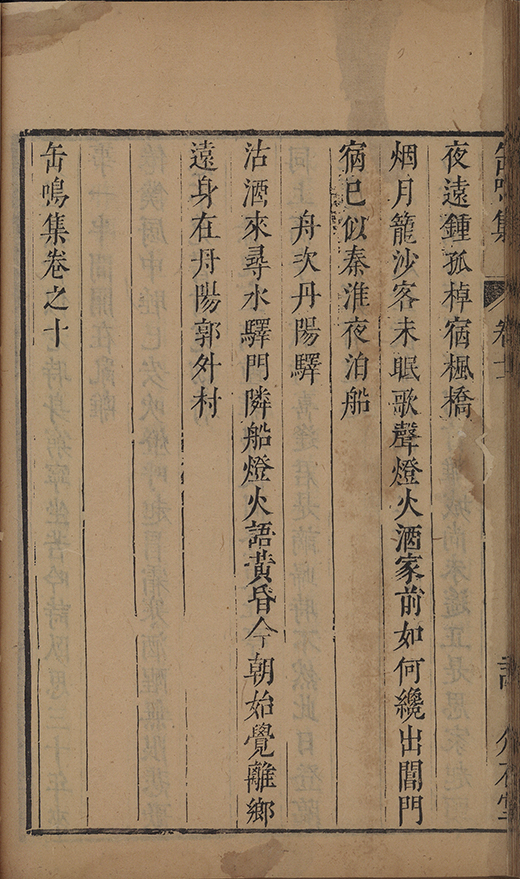 缶鳴集 卷十
夜遠鍾孤棹宿楓橋
烟月籠沙客未眠歌聲燈火酒家前如何纔出閶門
宿已似秦淮夜泊船
舟次丹陽驛
沽酒來尋水驛門隣船燈火語黃昏今朝始覺離鄉
遠身在丹陽郭外村
缶鳴集卷之十